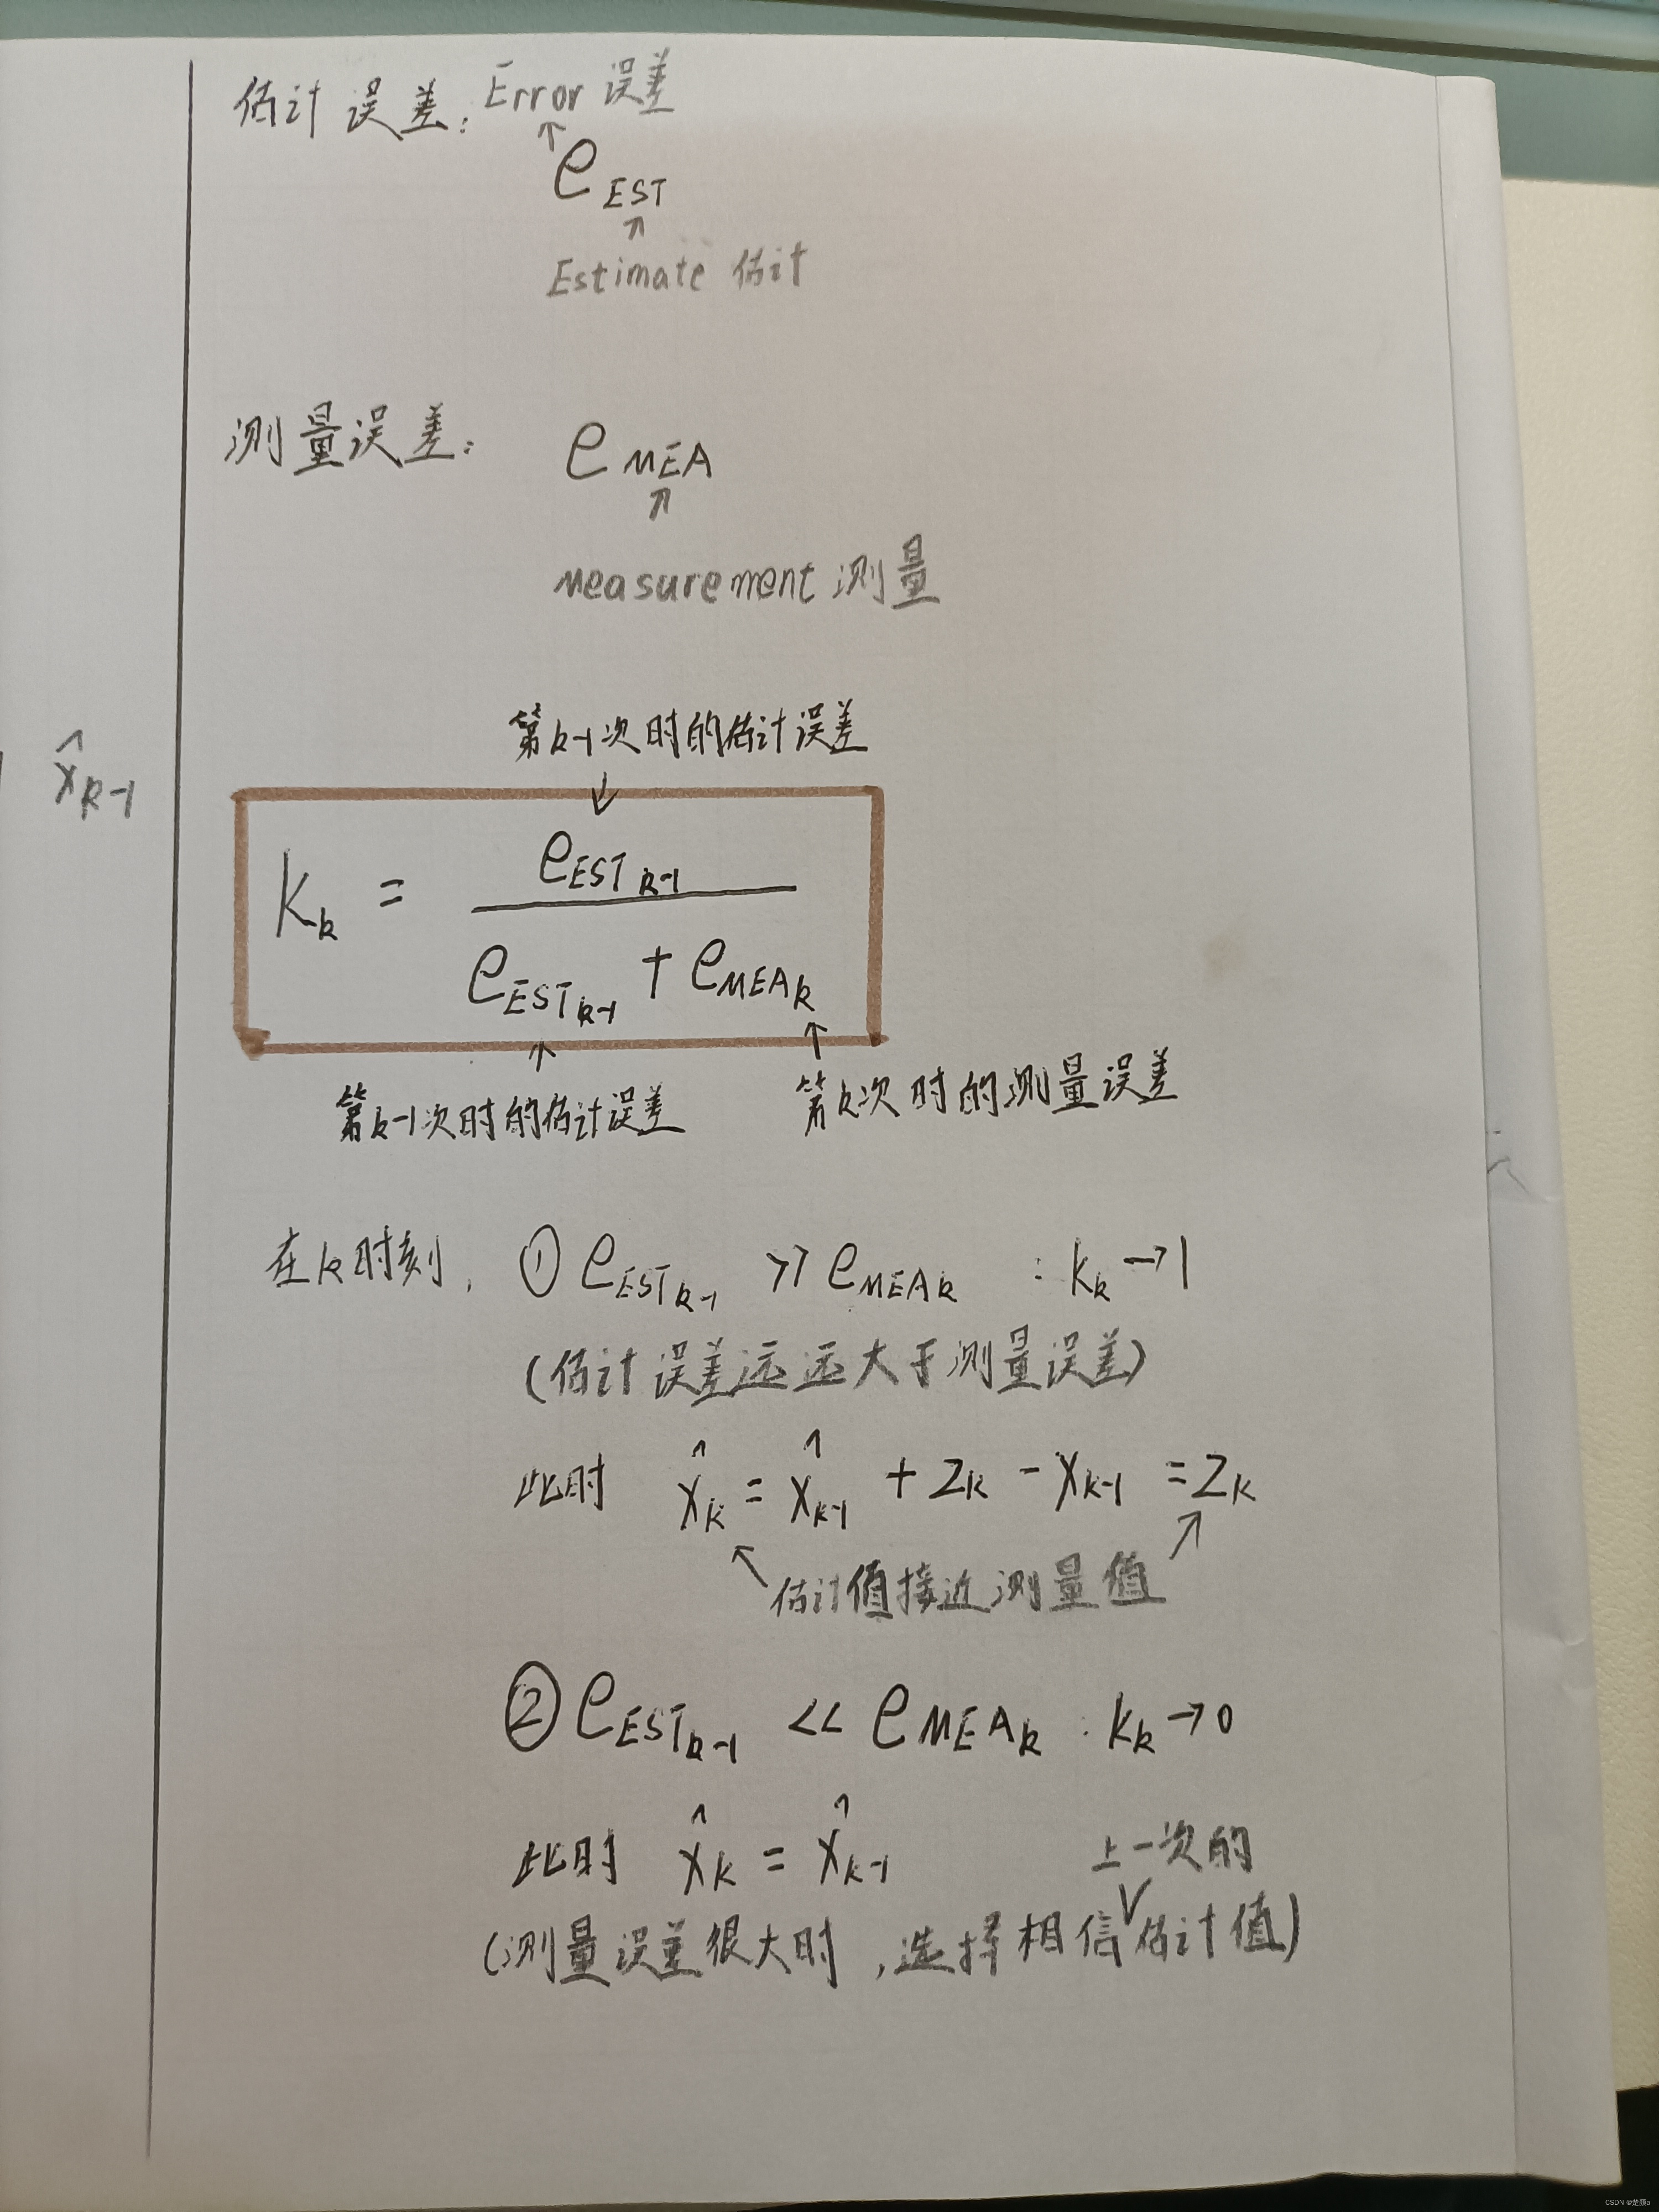 估计误差: Error 误差
↑
e EST
↑
Estimate 估计
测量误差: e MEA
↑
Measurement 测量
第k-1次时的估计误差
↓
x̂k-1
Kk = eESTk-1 / (eESTk-1 + eMEAk)
↑ ↑
第k-1次时的估计误差 第k次时的测量误差
在k时刻, ① eESTk-1 >> eMEAk : Kk→1
(估计误差远远大于测量误差)
此时 x̂k = x̂k-1 + Zk - xk-1 = Zk
估计值接近测量值
② eESTk-1 << eMEAk : Kk→0
此时 x̂k = x̂k-1
上一次的
(测量误差很大时,选择相信∨估计值)
CSDN @楚颜a